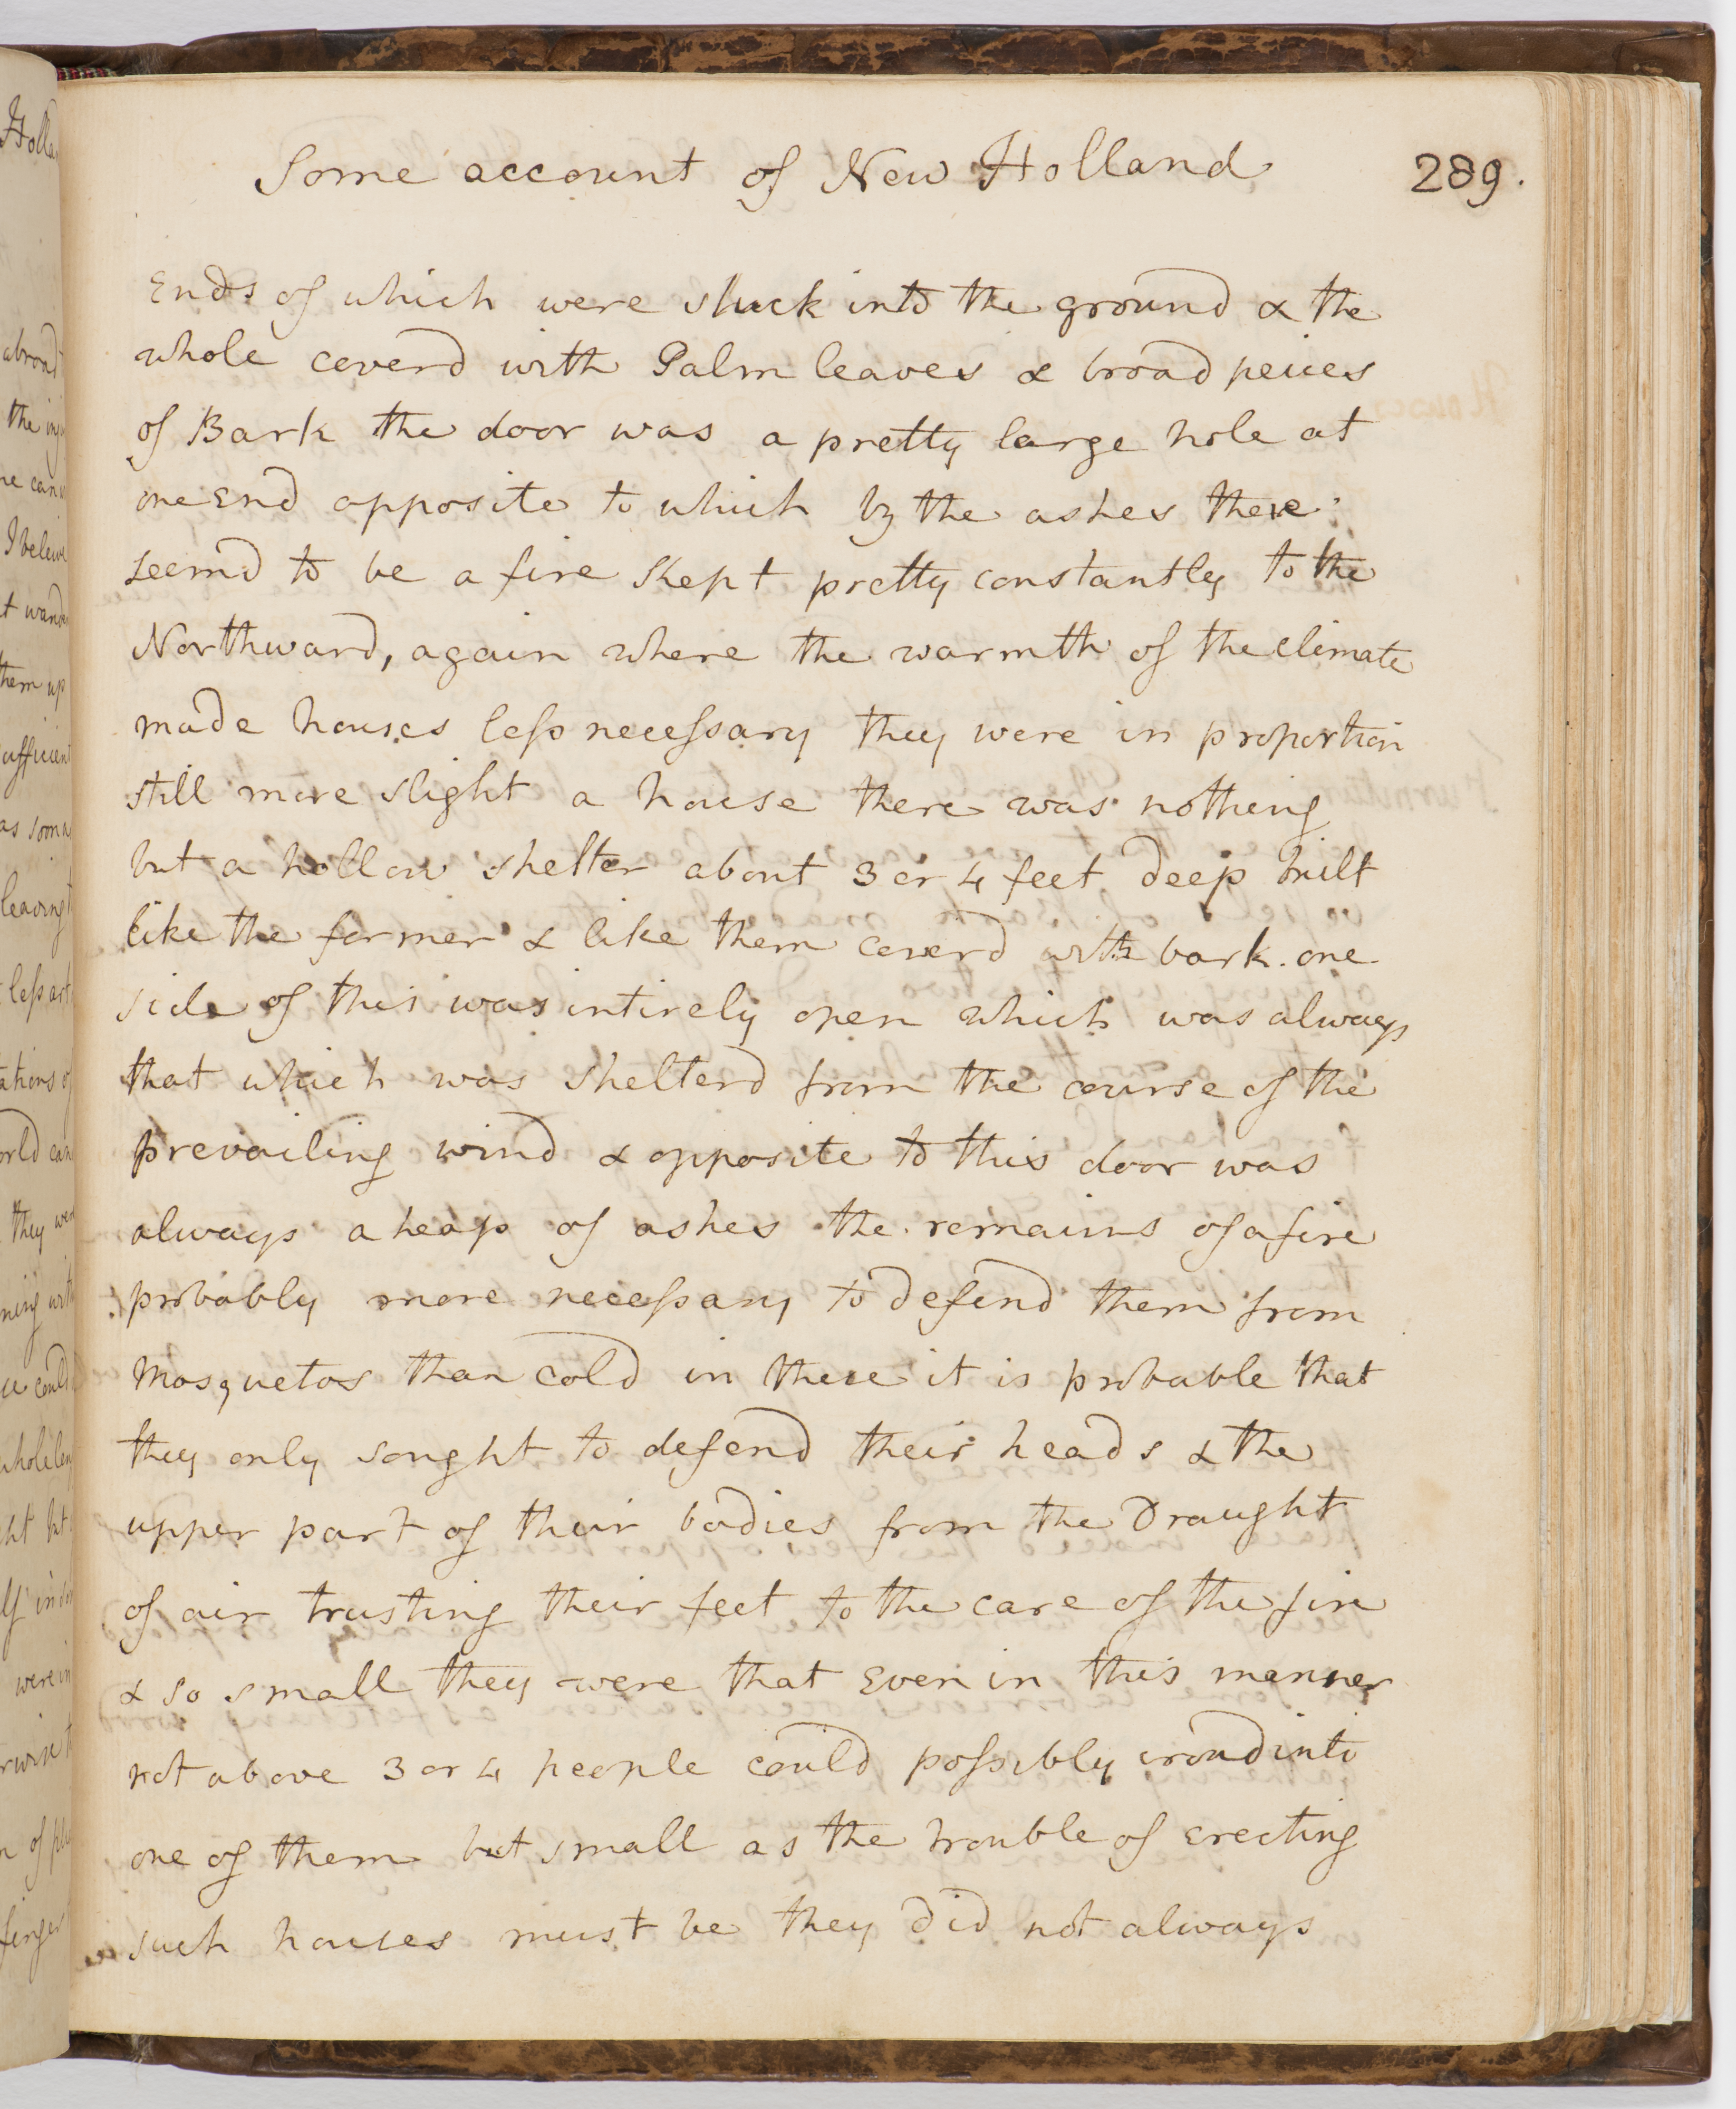 Some account of New Holland 289.
Ends of which were stuck into the ground & the
whole coverd with Palm leaves & broad peices
of Bark the door was a pretty large hole at
one End opposite to which by the ashes there
seemd to be a fire kept pretty constantly to the
Northward, again where the warmth of the climate
made houses less necessary they were in proportion
still more slight a house there was nothing
but a hollow shelter about 3 or 4 feet deep built
like the former & like them coverd with bark. one
side of this was intirely open which was always
that which was shelterd from the course of the
prevailing wind & opposite to this door was
always a heap of ashes the remains of a fire
probably more necessary to defend them from
Mosquetos than cold in these it is probable that
they only sought to defend their heads & the
upper part of their bodies from the Draught
of air trusting their feet to the care of the fire
& so small they were that Even in this manner
not above 3 or 4 people could possibly croud into
one of them but small as the trouble of erecting
such houses must be they did not always